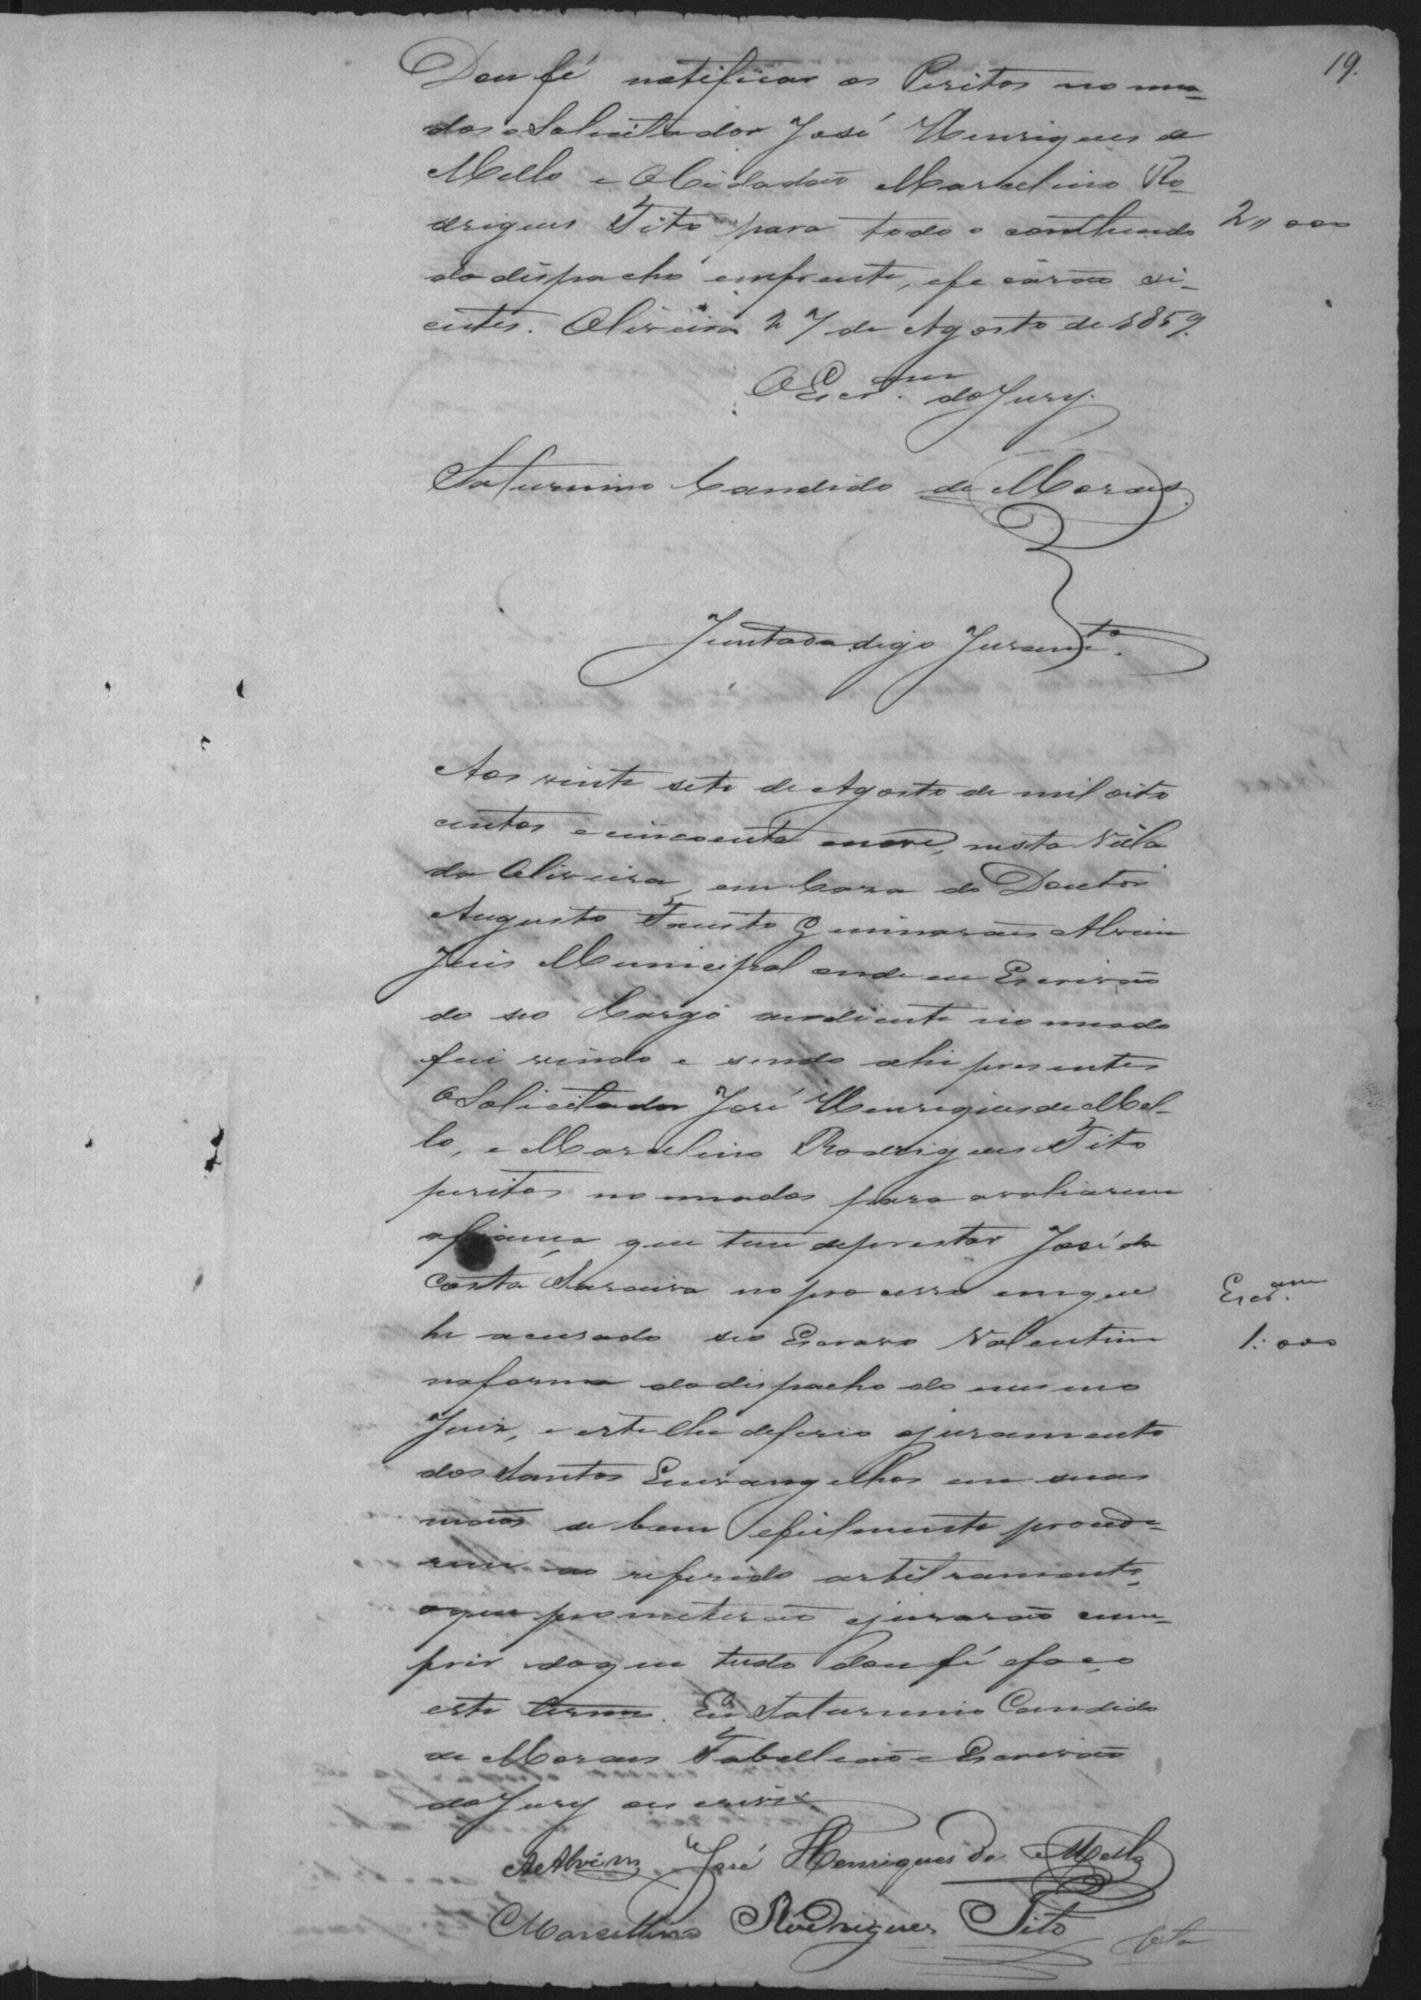 19.
Dou fé notificar os Peritos no mea-
dos o Solicitador José Henriques de
Mello e o Cidadão Marcelino Ro-
drigues Tito para todo o conthendo 2,,000
do dispacho emfrente, efecarão si-
entes. Oliveira 27 de Agosto de 1859.
O Escr.am do Jury.
Saturnino Candido de Moraes
Juntada digo Juram.to
Aos vinte sete de Agosto de mil oito
centos e cincoenta enove, nesta Villa
da Oliveira, em Caza do Doutor
Augusto Fausto Guimarães Alvim
Juis Municipal onde eu Escrivão
do seo Cargo audiente nomeado
fui vindo e sendo ahi presentes
o Solicitador José Henriques de Mel-
lo, e Marcelino Rodrigues Tito
peritos nomeados para avaliarem
afiança que tem de prestar José da
Costa Saraiva no processo emque Escr.am
he acusado seo Escravo Valentim 1:000
naforma do dispacho do mesmo
Juiz, e este lhe deferio ojuramento
dos Santos Euvangelhos em suas
mãos de bem efielmente procede-
rem ao referido arbitramento,
oque prometerão ejurarão cum-
prir doque tudo dou fé efaço
este termo. Eu Saturnino Candido
de Moraes Tabellião e Escrivão
do Jury oescrevi.
AeAlvim José Henriques de Mello
Marcellino Rodrigues Tito